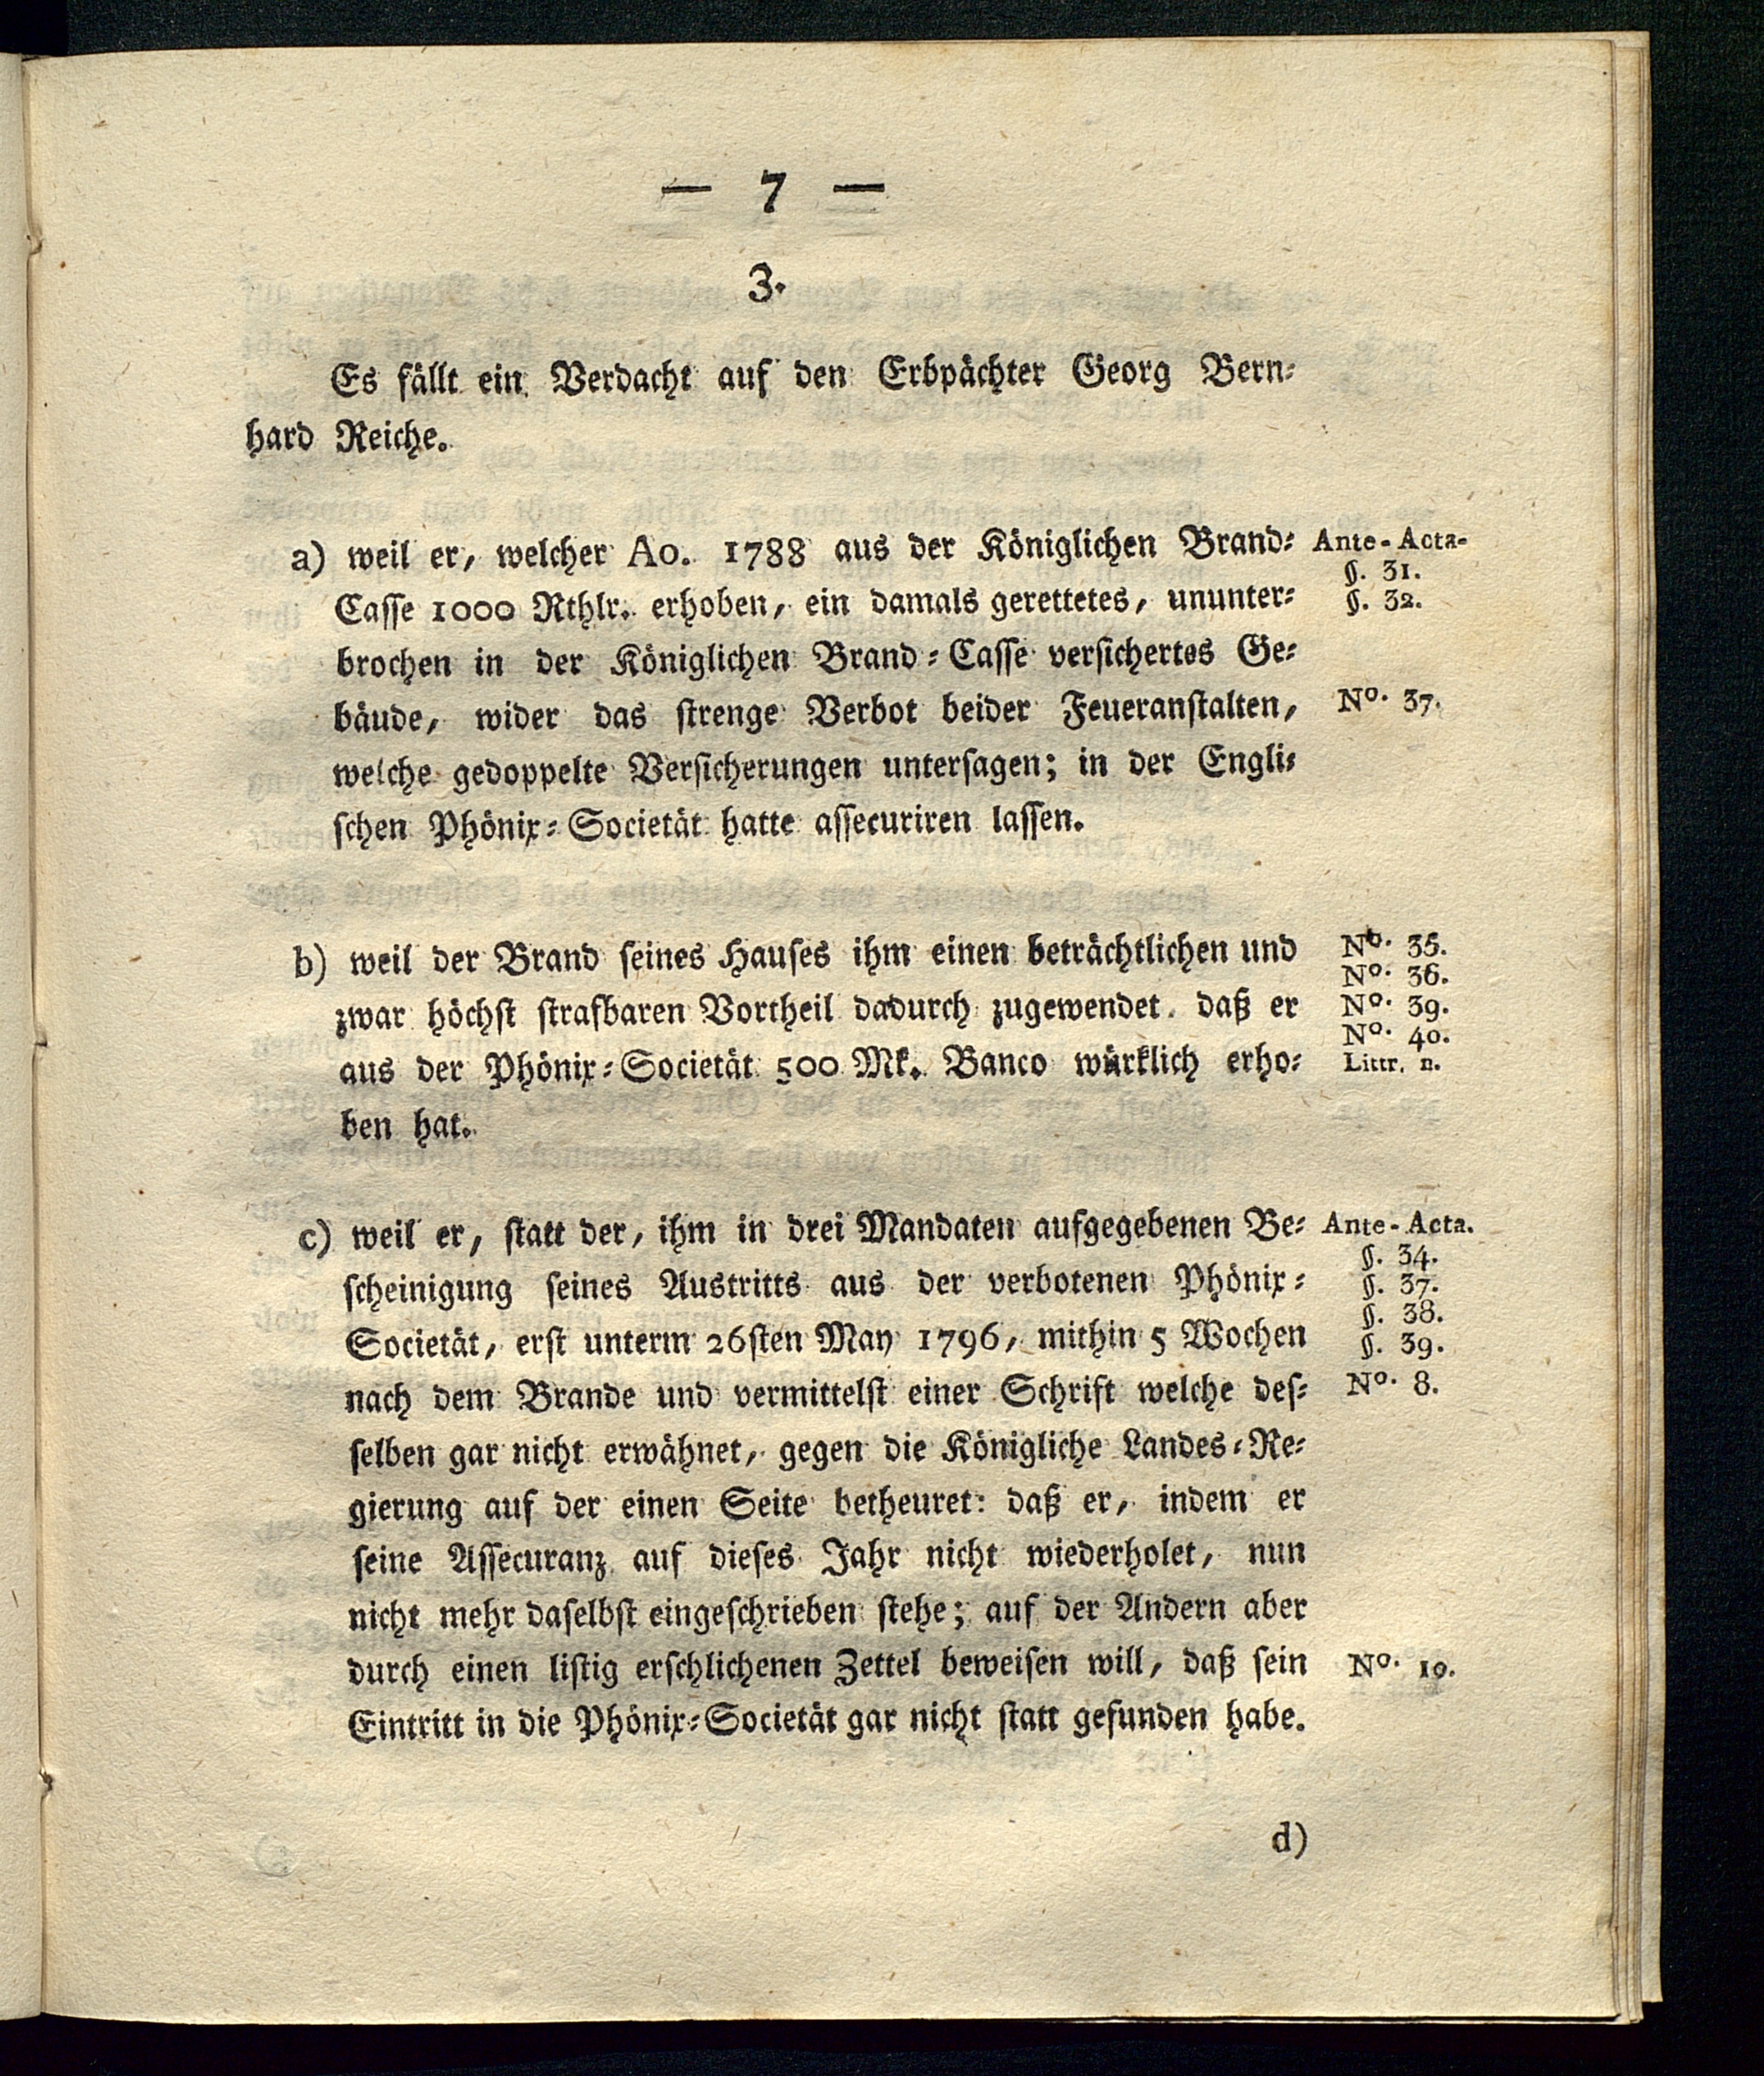 — 7 —
3.
Es fällt ein Verdacht auf den Erbpächter Georg Bern-
hard Reiche.
a) weil er, welcher Ao. 1788 aus der Königlichen Brand-
Casse 1000 Rthlr. erhoben, ein damals gerettetes, ununter-
brochen in der Königlichen Brand-Casse versichertes Ge-
bäude, wider das strenge Verbot beider Feueranstalten,
welche gedoppelte Versicherungen untersagen; in der Engli-
schen Phönix-Societät hatte assecuriren lassen.
Ante-Acta-
§. 31.
§. 32.
No. 37.
b) weil der Brand seines Hauses ihm einen beträchtlichen und
zwar höchst strafbaren Vortheil dadurch zugewendet. daß er
aus der Phönix-Societät 500 Mk. Banco würklich erho-
ben hat.
No. 35.
No. 36.
No. 39.
No. 40.
Littr. n.
c) weil er, statt der, ihm in drei Mandaten aufgegebenen Be-
scheinigung seines Austritts aus der verbotenen Phönix-
Societät, erst unterm 26sten May 1796, mithin 5 Wochen
nach dem Brande und vermittelst einer Schrift welche des-
selben gar nicht erwähnet, gegen die Königliche Landes-Re-
gierung auf der einen Seite betheuret: daß er, indem er
seine Assecuranz auf dieses Jahr nicht wiederholet, nun
nicht mehr daselbst eingeschrieben stehe; auf der Andern aber
durch einen listig erschlichenen Zettel beweisen will, daß sein
Eintritt in die Phönix-Societät gar nicht statt gefunden habe.
Ante-Acta.
§. 34.
§. 37.
§. 38.
§. 39.
No. 8.
No. 10.
d)